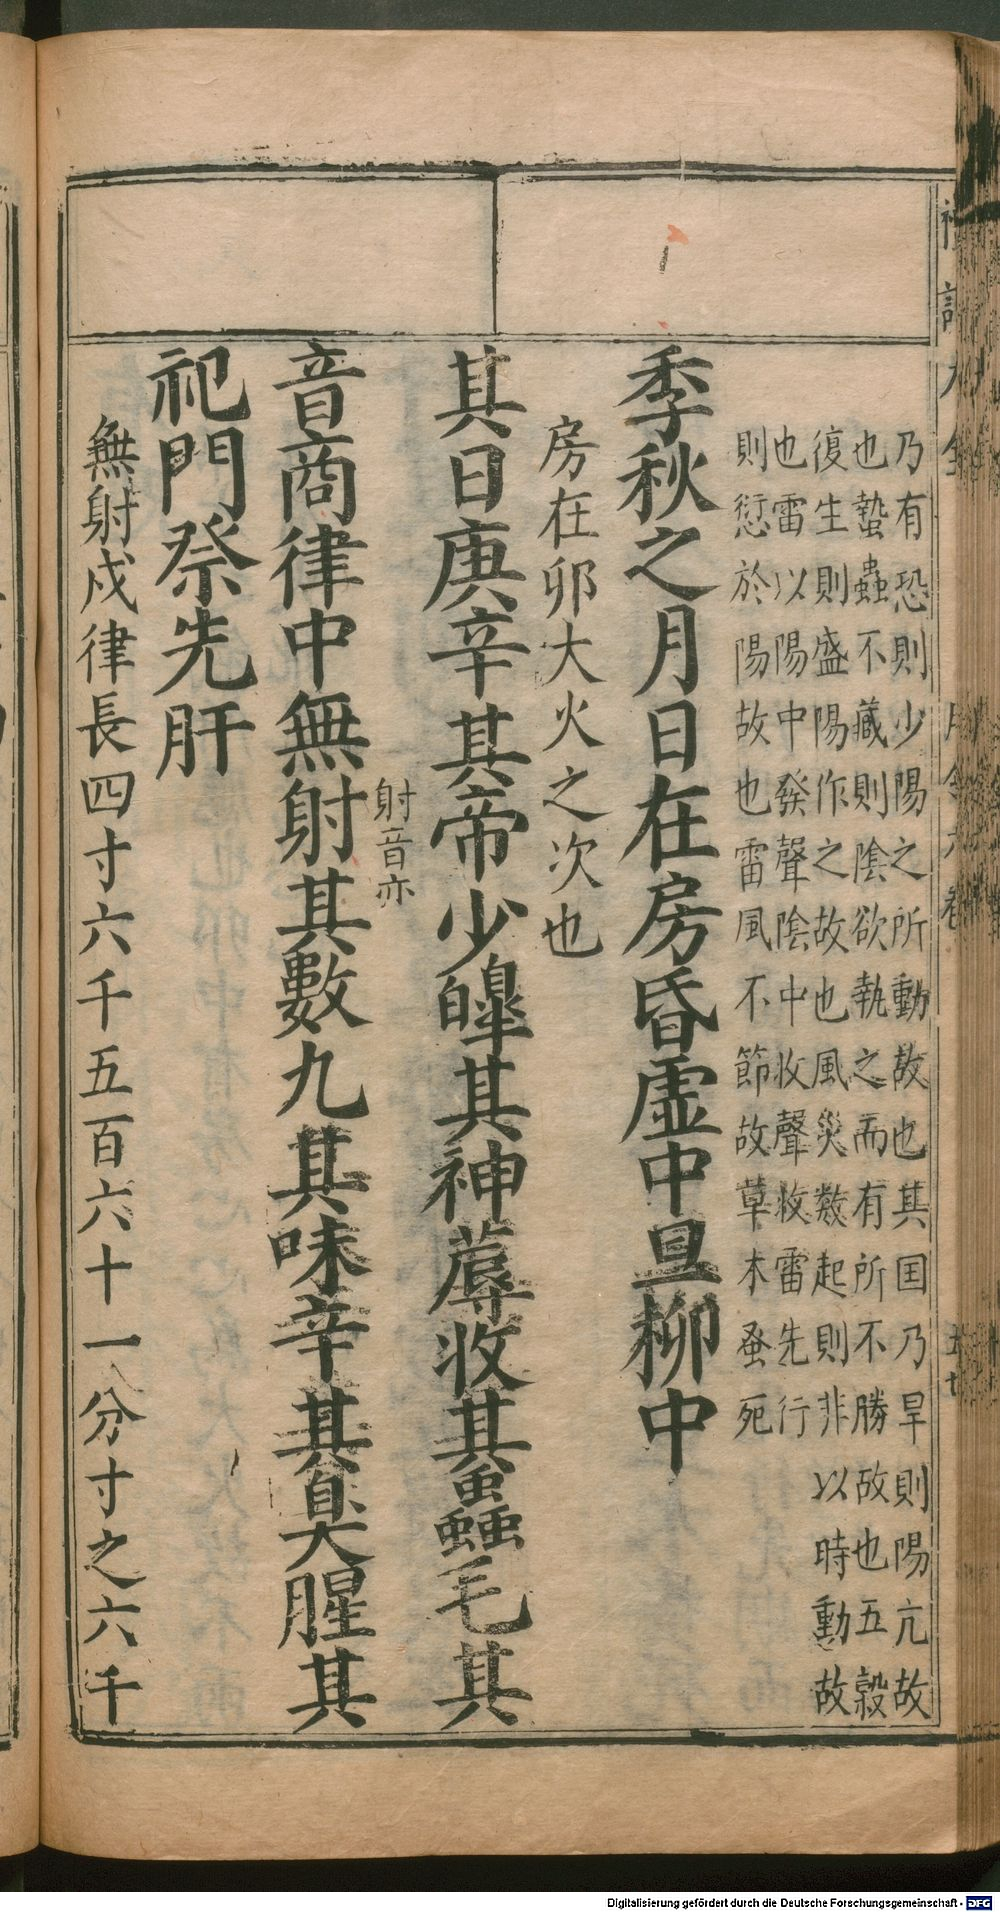 乃有恐則少陽之所動故也其国乃旱則陽亢故
也蟄蟲不藏則陰欲執之而有所不勝故也五榖
復生則盛陽作之故也風災数起則非以時動故
也雷以陽中發聲陰中收聲收雷先行
則愆於陽故也雷風不節故草木蚤死
季秋之月日在房昏虛中旦柳中
房在卯大火之次也
其日庚辛其帝少皞其神蓐收其蟲毛其
射音亦
音商律中無射其數九其味辛其臭腥其
祀門祭先肝
無射戍律長四寸六千五百六十一分寸之六千
Digitalisierung gefördert durch die Deutsche Forschungsgemeinschaft - DFG